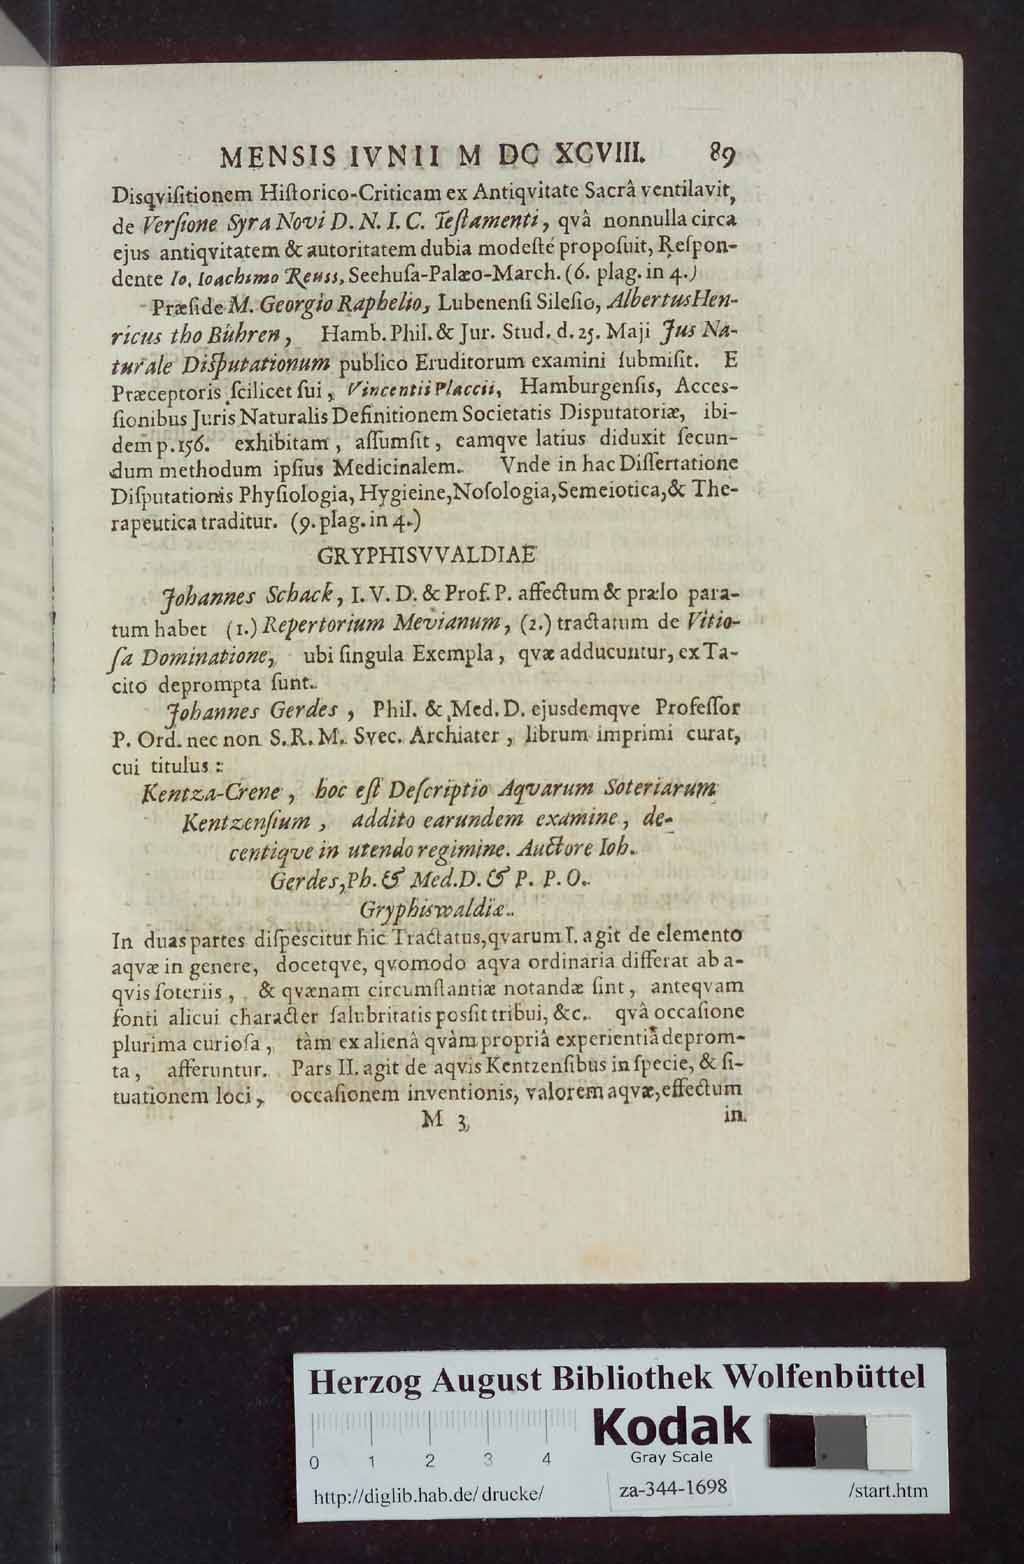 MENSIS IVNII M DC XCVIII. 89
Disqviſitionem Hiſtorico-Criticam ex Antiqvitate Sacrâ ventilavit,
de Verſione Syra Novi D. N. I. C. Teſtamenti, qvâ nonnulla circa
ejus antiqvitatem & autoritatem dubia modeſtè propoſuit, Reſpon-
dente Io. Ioachimo Reuss, Seehuſa-Palæo-March. (6. plag. in 4.)
Præſide M. Georgio Raphelio, Lubenenſi Sileſio, Albertus Hen-
ricus tho Bühren, Hamb. Phil. & Jur. Stud. d. 25. Maji Jus Na-
turale Diſputationum publico Eruditorum examini ſubmiſit. E
Præceptoris ſcilicet ſui, Vincentii Placcii, Hamburgenſis, Acces-
ſionibus Juris Naturalis Definitionem Societatis Disputatoriæ, ibi-
dem p. 156. exhibitam, aſſumſit, eamqve latius diduxit ſecun-
dum methodum ipſius Medicinalem. Vnde in hac Diſſertatione
Diſputationis Phyſiologia, Hygieine, Noſologia, Semeiotica, & The-
rapeutica traditur. (9. plag. in 4.)
GRYPHISVVALDIAE
Johannes Schack, I. V. D. & Prof. P. affectum & prælo para-
tum habet (1.) Repertorium Mevianum, (2.) tractatum de Vitio-
ſa Dominatione, ubi ſingula Exempla, qvæ adducuntur, ex Ta-
cito deprompta ſunt.
Johannes Gerdes, Phil. & Med. D. ejusdemqve Profeſſor
P. Ord. nec non S. R. M. Svec. Archiater, librum imprimi curat,
cui titulus:
Kentza-Crene, hoc eſt Deſcriptio Aqvarum Soteriarum
Kentzenſium, addito earundem examine, de-
centiqve in utendo regimine. Auctore Ioh.
Gerdes, Ph. & Med. D. & P. P. O.
Gryphiswaldiæ.
In duas partes diſpeſcitur hic Tractatus, qvarum I. agit de elemento
aqvæ in genere, docetqve, qvomodo aqva ordinaria differat ab a-
qvis ſoteriis, & qvænam circumſtantiæ notandæ ſint, anteqvam
fonti alicui character ſalubritatis posſit tribui, &c. qvâ occaſione
plurima curioſa, tàm ex alienâ qvàm propriâ experientiâ deprom-
ta, afferuntur. Pars II. agit de aqvis Kentzenſibus in ſpecie, & ſi-
tuationem loci, occaſionem inventionis, valorem aqvæ, effectum
M 3 in
Herzog August Bibliothek Wolfenbüttel
0 1 2 3 4
Kodak
Gray Scale
http://diglib.hab.de/drucke/ za-344-1698 /start.htm